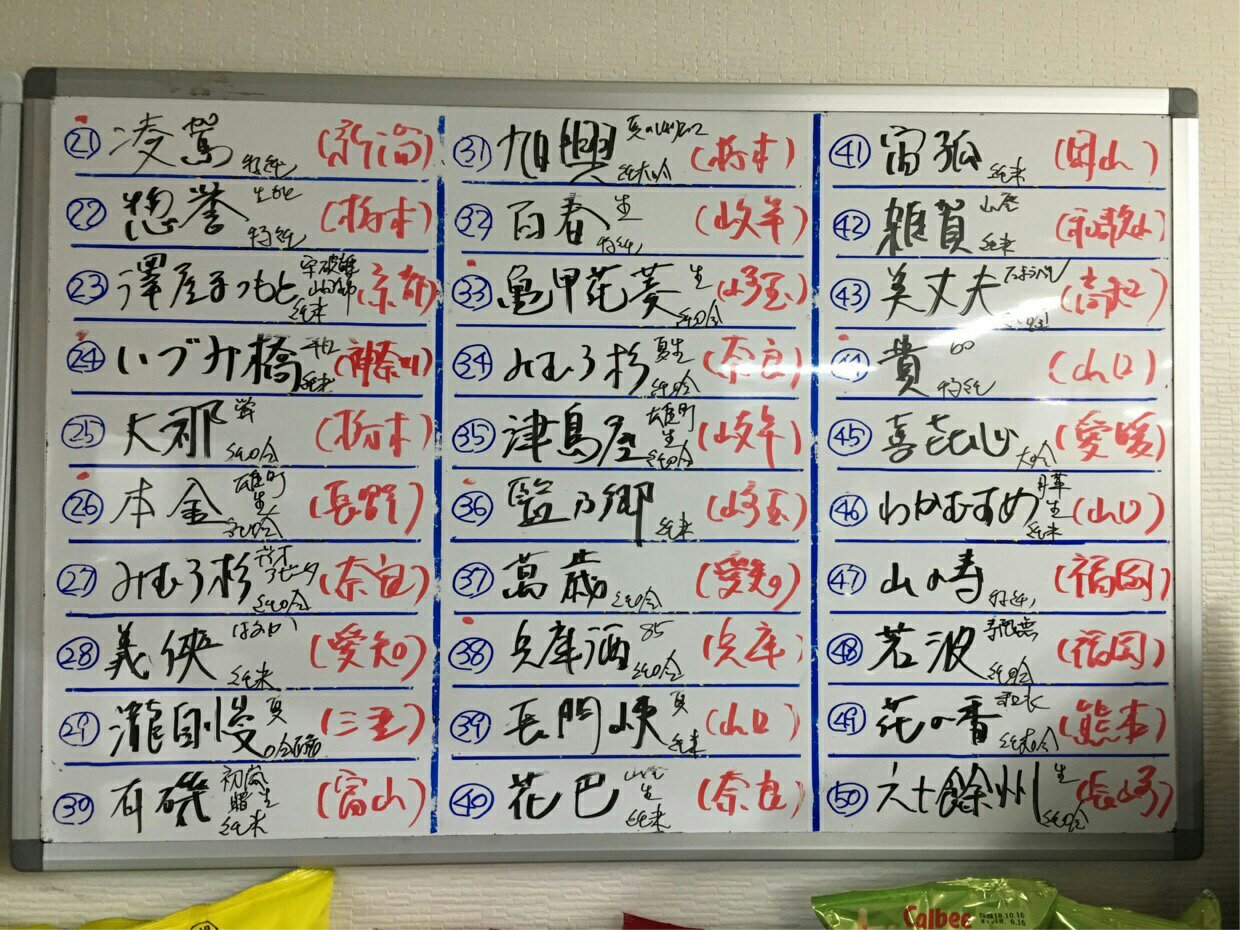 ㉑ 凌駕 特純 (新潟)
㉒ 惣誉 生酛 特純 (栃木)
㉓ 澤屋まつもと 守破離 山田錦 純米 (京都)
㉔ いづみ橋 純米 (神奈川)
㉕ 大那 蛍 純吟 (栃木)
㉖ 本金 雄町 生 純吟 (長野)
㉗ みむろ杉 純吟 (奈良)
㉘ 義侠 はるか 純米 (愛知)
㉙ 瀧自慢 夏 吟醸 (三重)
㉚ 有磯 初嵐 曙 生 純米 (富山)
㉛ 旭興 夏のしぼりたて 純大吟 (栃木)
㉜ 百春 生 特純 (岐阜)
㉝ 亀甲花菱 生 純吟 (埼玉)
㉞ みむろ杉 夏生 純吟 (奈良)
㉟ 津島屋 雄町 生 純吟 (岐阜)
㊱ 鏡乃郷 純米 (埼玉)
㊲ 萬歳 純吟 (愛知)
㊳ 兵庫酒 85 純吟 (兵庫)
㊴ 長門峡 夏 純米 (山口)
㊵ 花巴 山廃 生 純米 (奈良)
㊶ 宙狐 純米 (岡山)
㊷ 雑賀 山廃 純米 (和歌山)
㊸ 美丈夫 純吟 (高知)
㊹ 貴 60 特純 (山口)
㊺ 喜七心 大吟 (愛媛)
㊻ わかむすめ 月草 生 純米 (山口)
㊼ 山の寿 特純 (福岡)
㊽ 若波 寿限無 純吟 (福岡)
㊾ 花の香 和水 純大吟 (熊本)
㊿ 六十餘州 生 純吟 (長崎)
Calbee